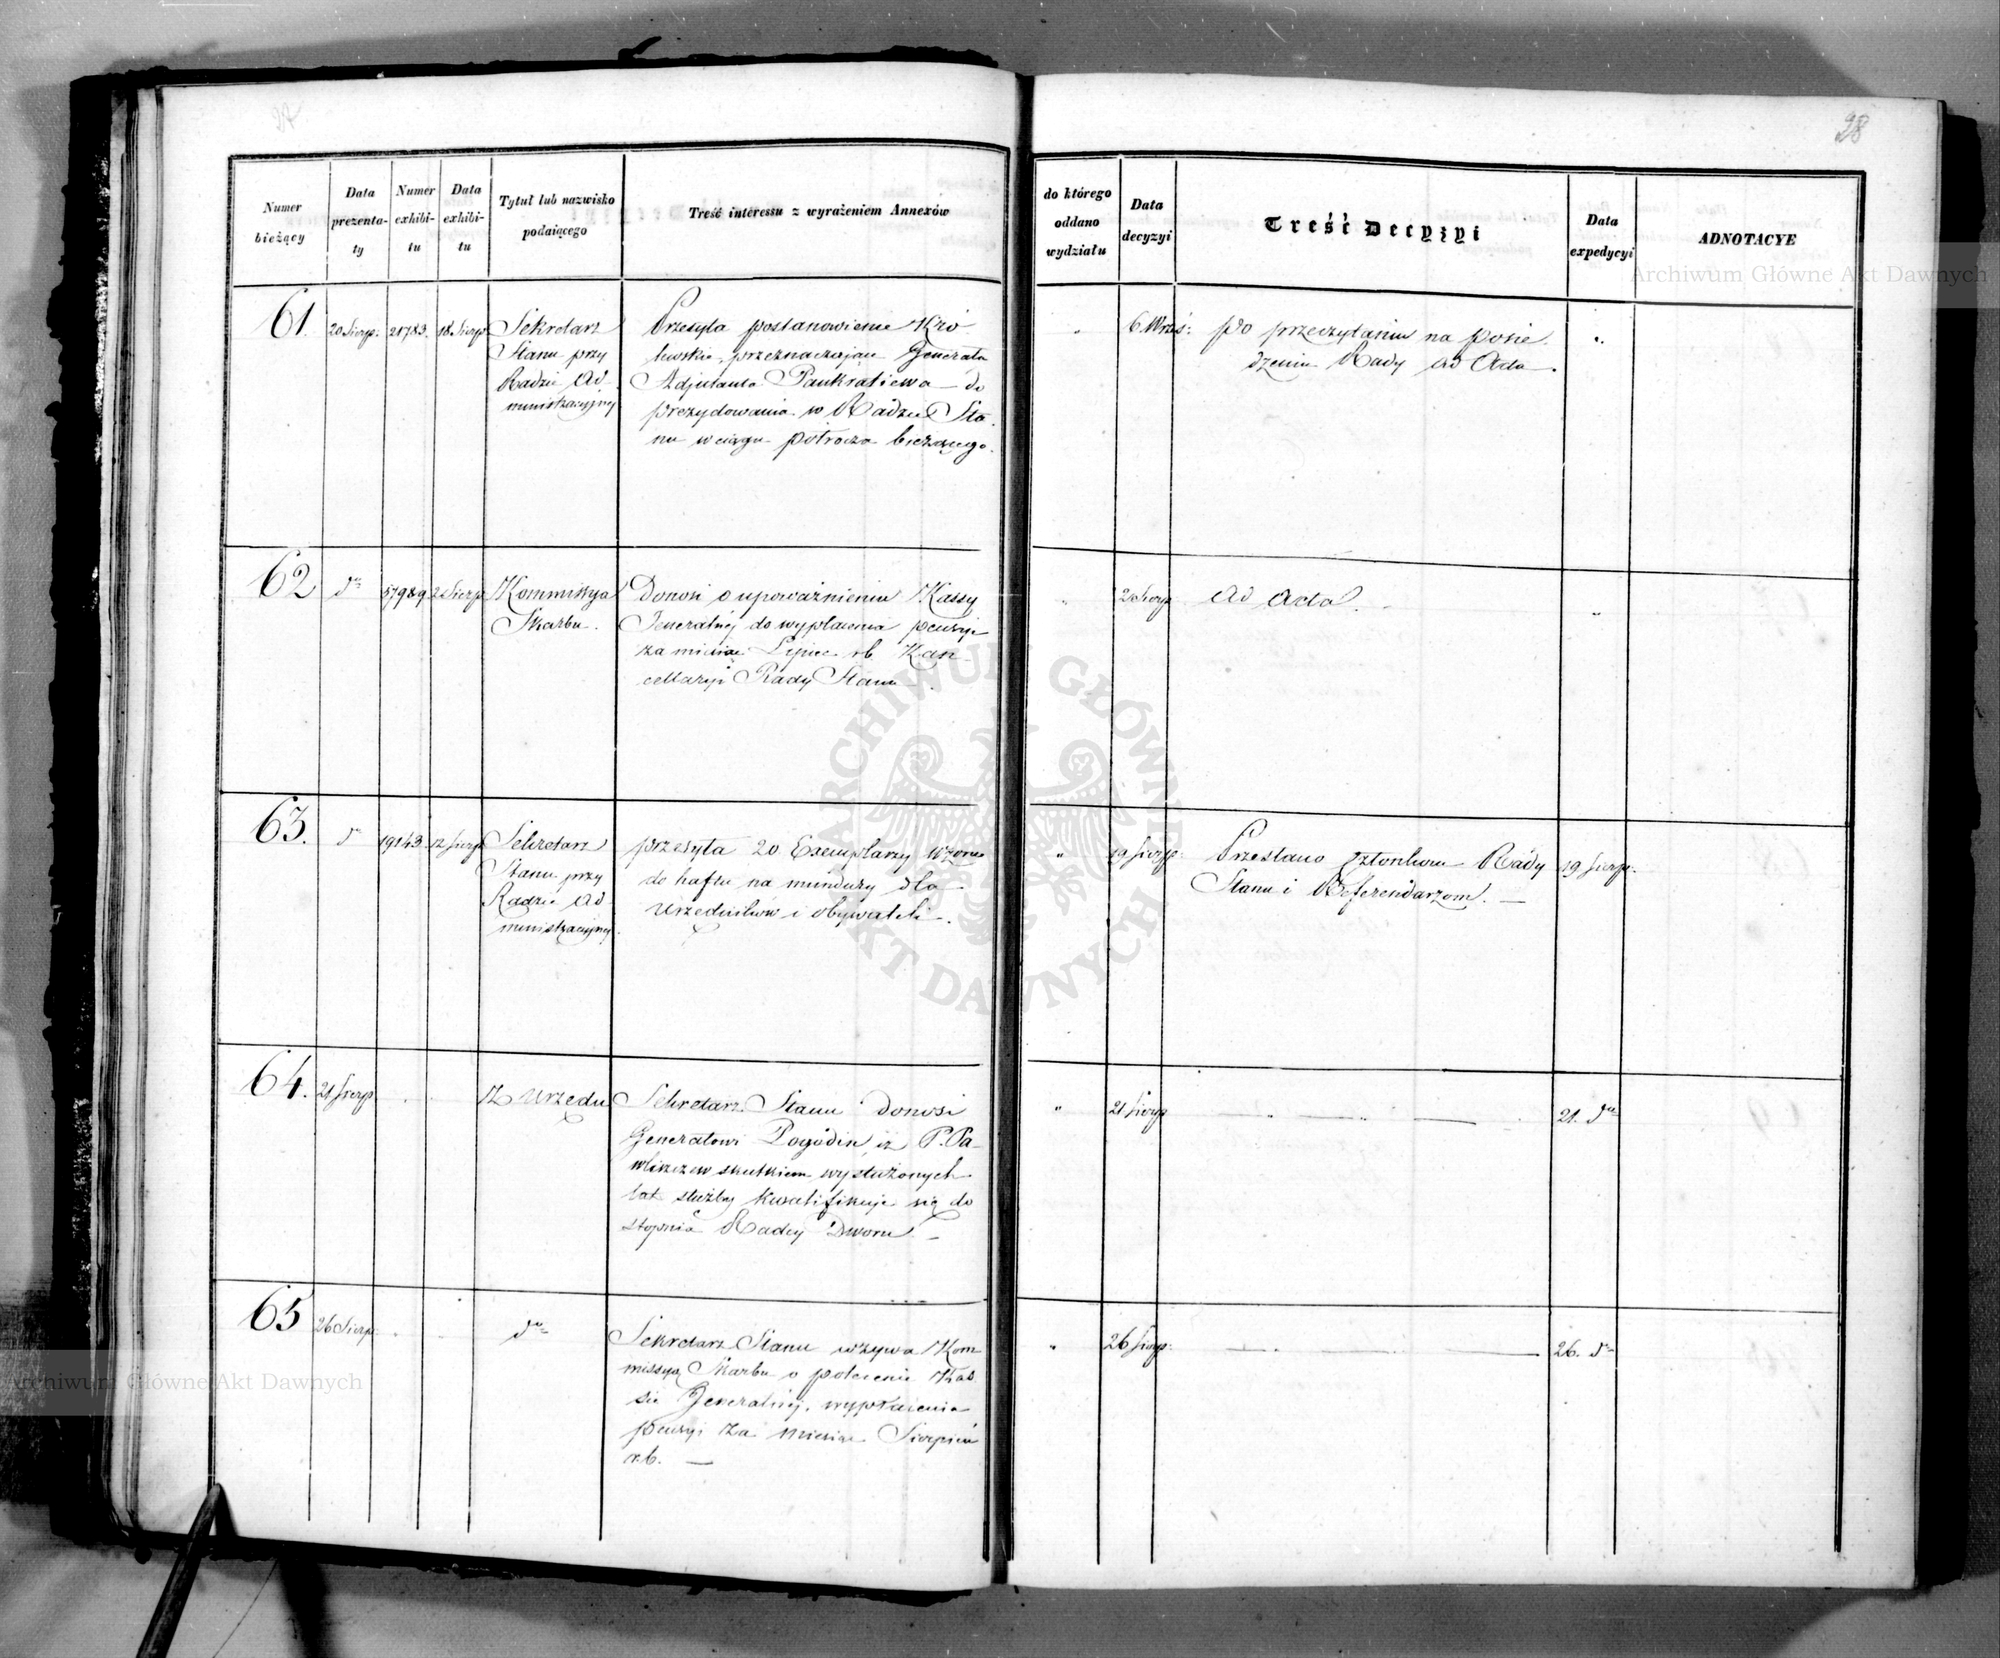 27
28
Numer bieżący
Data prezentaty
Numer exhibitu
Data exhibitu
Tytuł lub nazwisko podaiącego
Treść interessu z wyrażeniem Annexów
do którego oddano wydziału
Data decyzyi
Treść Decyzyi
Data expedycyi
ADNOTACYE
61.
20 Sierp:
21783.
18. Sierp
Sekretarz
Stanu przy
Radzie Ad
ministracyjnej
Przesyła postanowienie Kró
lewskie, przeznaczające Generała
Adjutanta Pankratiewa do
prezydowania w Radzie Sta
nu w ciągu półrocza bieżącego.
"
6 Wrześ:
po przeczytaniu na posie
dzeniu Rady ad Acta.
62
do
57989
Sierp
Kommissya
Skarbu.
Donosi o upoważnieniu Kassy
Jeneralnéj do wypłacenia pensyi
za miesiąc Lipiec rb. Kan
cellaryi Rady Stanu
"
Sierp
ad acta.
"
63.
do
19143.
12 Sierp
Sekretarz
Stanu przy
Radzie Ad
ministracyjnej
przesyła 20 Exemplarzy wzoru
do haftu na mundury dla
urzedników i obywateli.
"
19 Sierp:
Przesłano członkom Rady
Stanu i Referendarzom. —
19 Sierp:
64.
21 Sierp
Z Urzędu
Sekretarz Stanu donosi
Generałowi Pogodin, iż P. Pa-
wliszczew skutkiem wysłużonych
lat służby kwalifikuje się do
stopnia Radcy Dworu —
"
21 Sierp
21. do
65
26 Sierp:
do
Sekretarz Stanu wzywa Kom
missyą Skarbu o polecenie Kas
sie Generalnéj, wypłacenia
pensyi za miesiąc Sierpień
r.b. —
"
26 Sierp:
26. do
Archiwum Główne Akt Dawnych
Archiwum Główne Akt Dawnych
ARCHIWUM GŁÓWNE AKT DAWNYCH